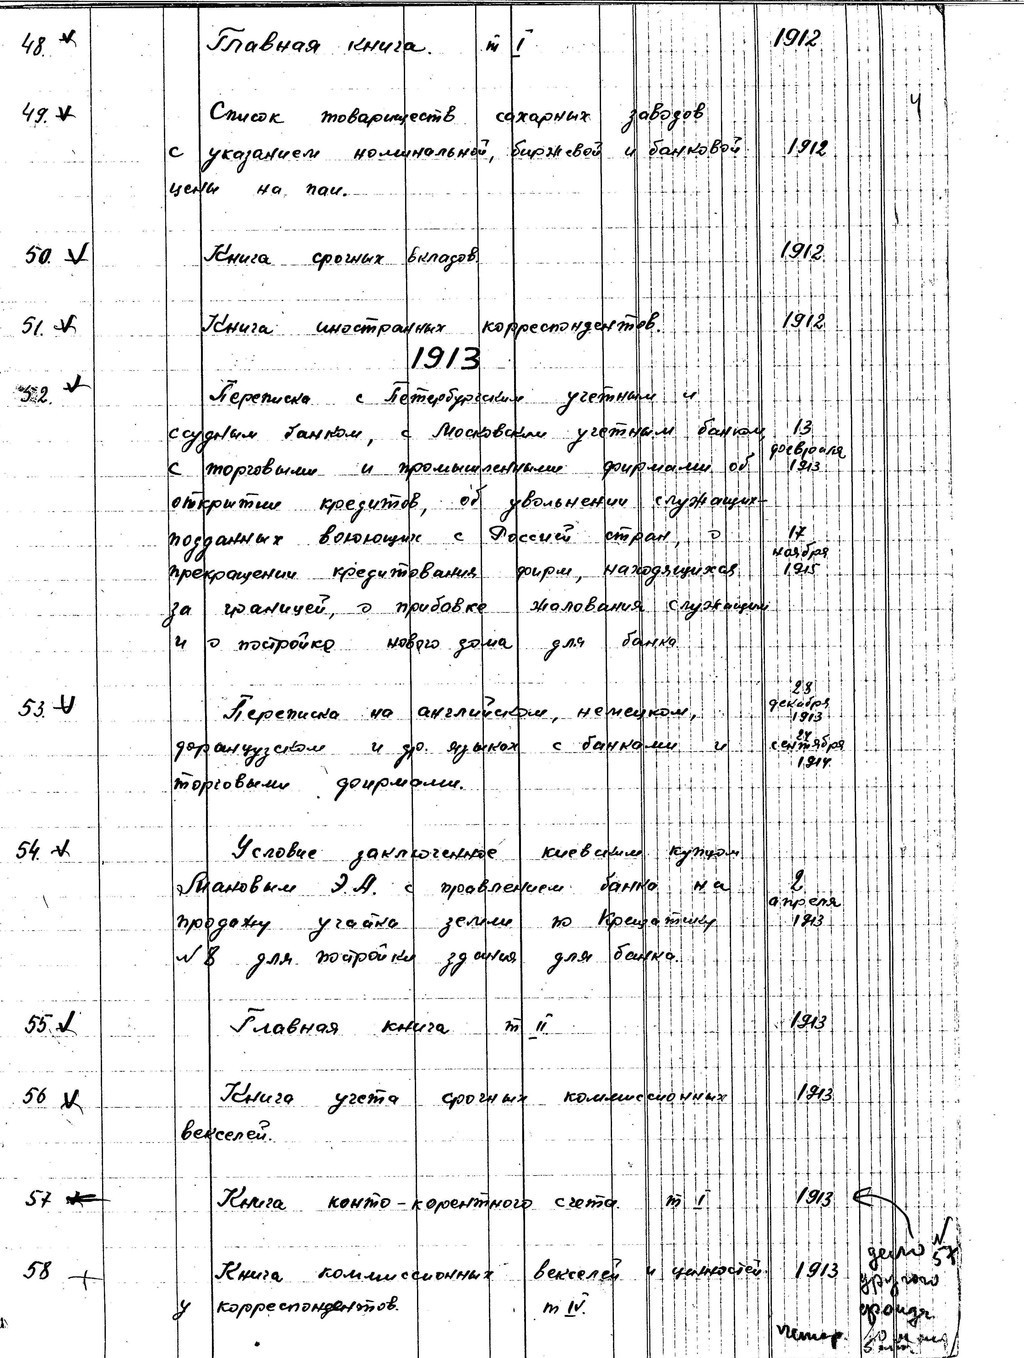 48. Главная книга. т I 1912
49. Список товариществ сахарных заводов 4
с указанием номинальной, биржевой и банковой 1912
цены на паи.
50. Книга срочных вкладов. 1912
51. Книга иностранных корреспондентов. 1912
1913
52. Переписка с Петербургским учетным и
ссудным банком, с Московским учетным банком, 13
февраля
с торговыми и промышленными фирмами об 1913
открытии кредитов, об увольнении служащих-
подданных воюющих с Россией стран, о 17
ноября
прекращении кредитования фирм, находящихся 1915
за границей, о прибавке жалования служащим
и о постройке нового дома для банка
28
декабря
53. Переписка на английском, немецком, 1913
французском и др. языках с банками и сентября
1914
торговыми фирмами.
54. Условие заключенное киевским купцом
Э.А. с правлением банка на 2
апреля
продажу участка земли по Крещатику 1913
№ 8 для постройки здания для банка.
55. Главная книга т II 1913
56 Книга учета срочных коммиссионных 1913
векселей.
57 Книга конто-корентного счета. т I 1913
дело № 57
58 Книга коммиссионных векселей и ценностей 1913 другого
у корреспондентов. т IV. фонда.